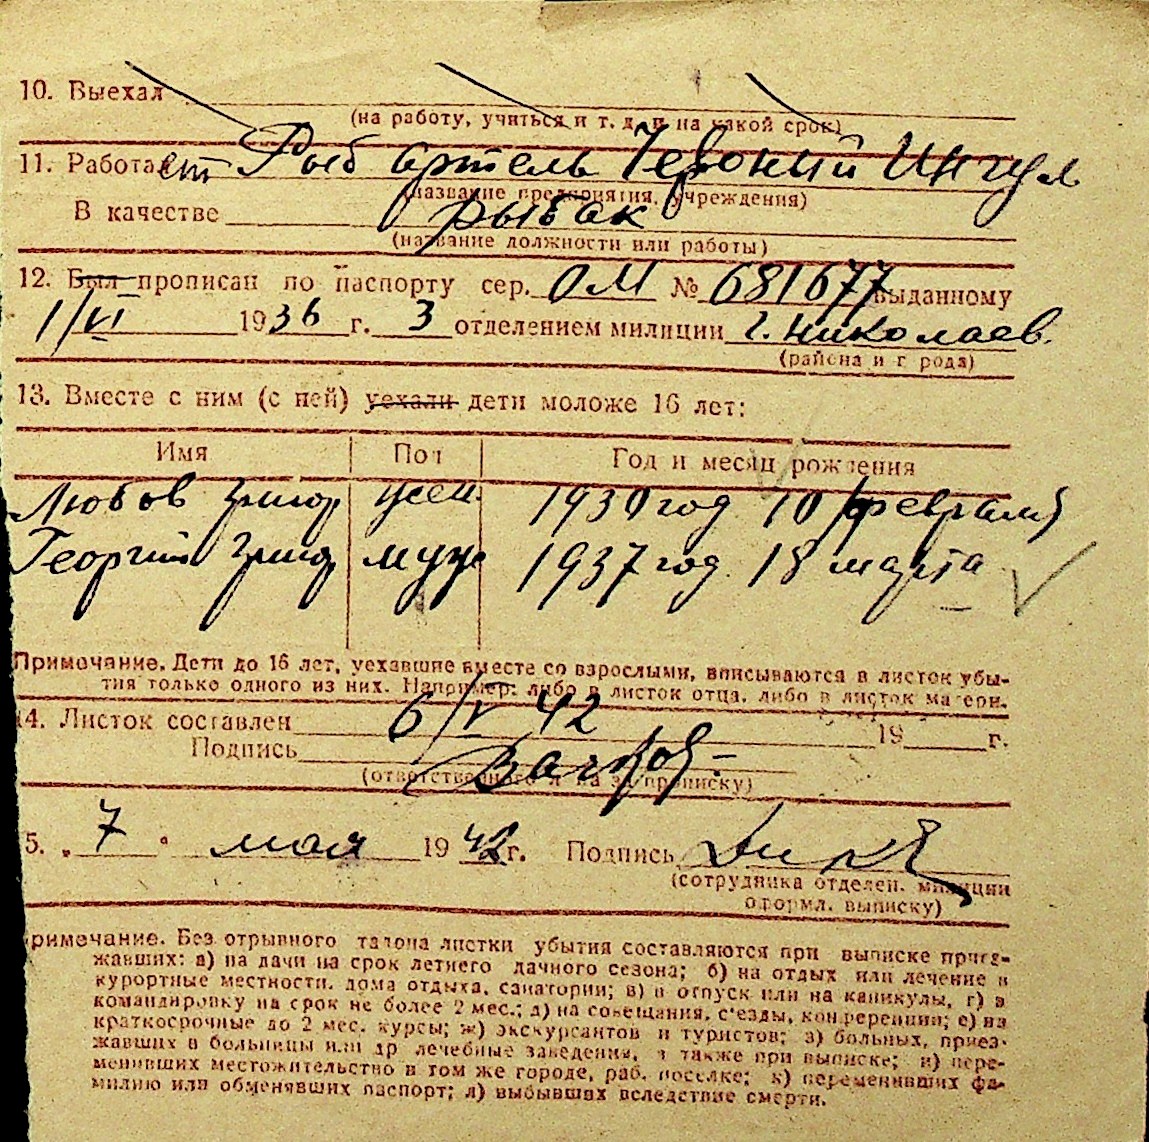 10. Выехал
(на работу, учиться и т. д. и на какой срок)
11. Работает Рыб артель Червоний Ингул
(название предприятия, учреждения)
В качестве рыбак
(название должности или работы)
12. Был прописан по паспорту сер. ОМ № 681677 выданному
1/VI 1936 г. 3 отделением милиции г. Николаев.
(района и города)
13. Вместе с ним (с ней) уехали дети моложе 16 лет:
Имя Пол Год и месяц рождения
Любов Григор жен. 1930 год 10 февраля
Георгий Григор муж 1937 год 18 марта
Примечание. Дети до 16 лет, уехавшие вместе со взрослыми, вписываются в листок убы-
тия только одного из них. Например: либо в листок отца, либо в листок матери.
14. Листок составлен 6/V 42 19 г.
Подпись
(ответственного л-ца за прописку)
5. „ 7 " мая 1942 г. Подпись
(сотрудника отделен. милиции
оформл. выписку)
римечание. Без отрывного талона листки убытия составляются при выписке приез-
жавших: а) на дачи на срок летнего дачного сезона; б) на отдых или лечение в
курортные местности, дома отдыха, санатории; в) в отпуск или на каникулы, г) в
командировку на срок не более 2 мес.; д) на совещания, с'езды, конференции; е) на
краткосрочные до 2 мес. курсы; ж) экскурсантов и туристов; з) больных, приез-
жавших в больницы или др лечебные заведения, а также при выписке; и) пере-
менивших местожительство в том же городе, раб. поселке; к) переменивших фа-
милию или обменявших паспорт; л) выбывших вследствие смерти.